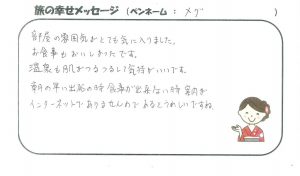 旅の幸せメッセージ (ペンネーム : メグ )
部屋の雰囲気がとても気に入りました。
お食事もおいしかったです。
温泉も肌がつるつるして気持がいいです。
朝の早い出発の時 食事が出来ない時
インターネットで あるとうれしいですね